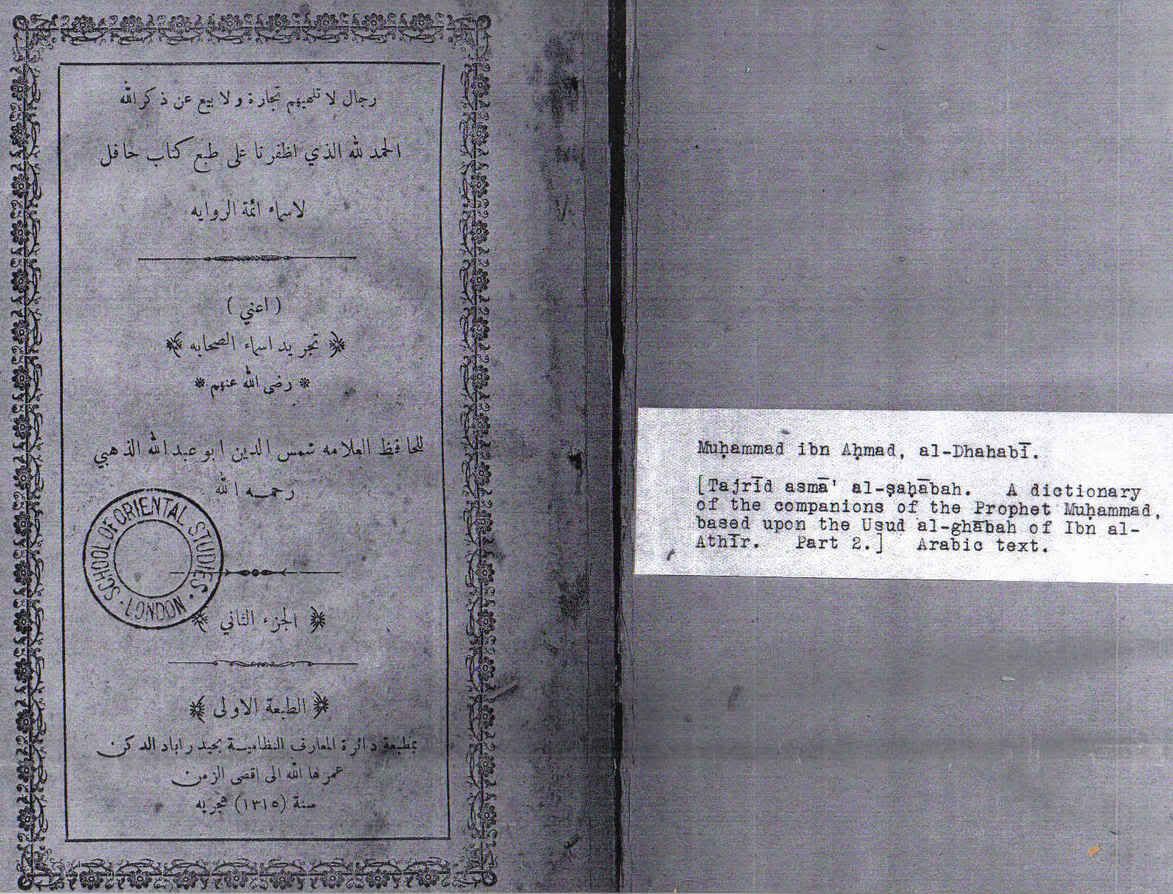 رجال لا تلهيهم تجارة و لا بيع عن ذكر الله
الحمد لله الذي اظفرنا على طبع كتاب حافل
لاسماء ائمة الروايه
( اعني )
تجريد اسماء الصحابه
* رضى الله عنهم *
للحافظ العلامه شمس الدين ابو عبد الله الذهبي
رحمه الله
SCHOOL OF ORIENTAL STUDIES · LONDON ·
الجزء الثاني
الطبعة الاولى
بمطبعة دائرة المعارف النظامية بحيدراباد الدكن
عمرها الله الى اقصى الزمن
سنة (١٣١٥) هجريه
Muḥammad ibn Aḥmad, al-Dhahabī.
[Tajrīd asmā' al-ṣaḥābah. A dictionary
of the companions of the Prophet Muḥammad,
based upon the Usud al-ghābah of Ibn al-
Athīr. Part 2.] Arabic text.